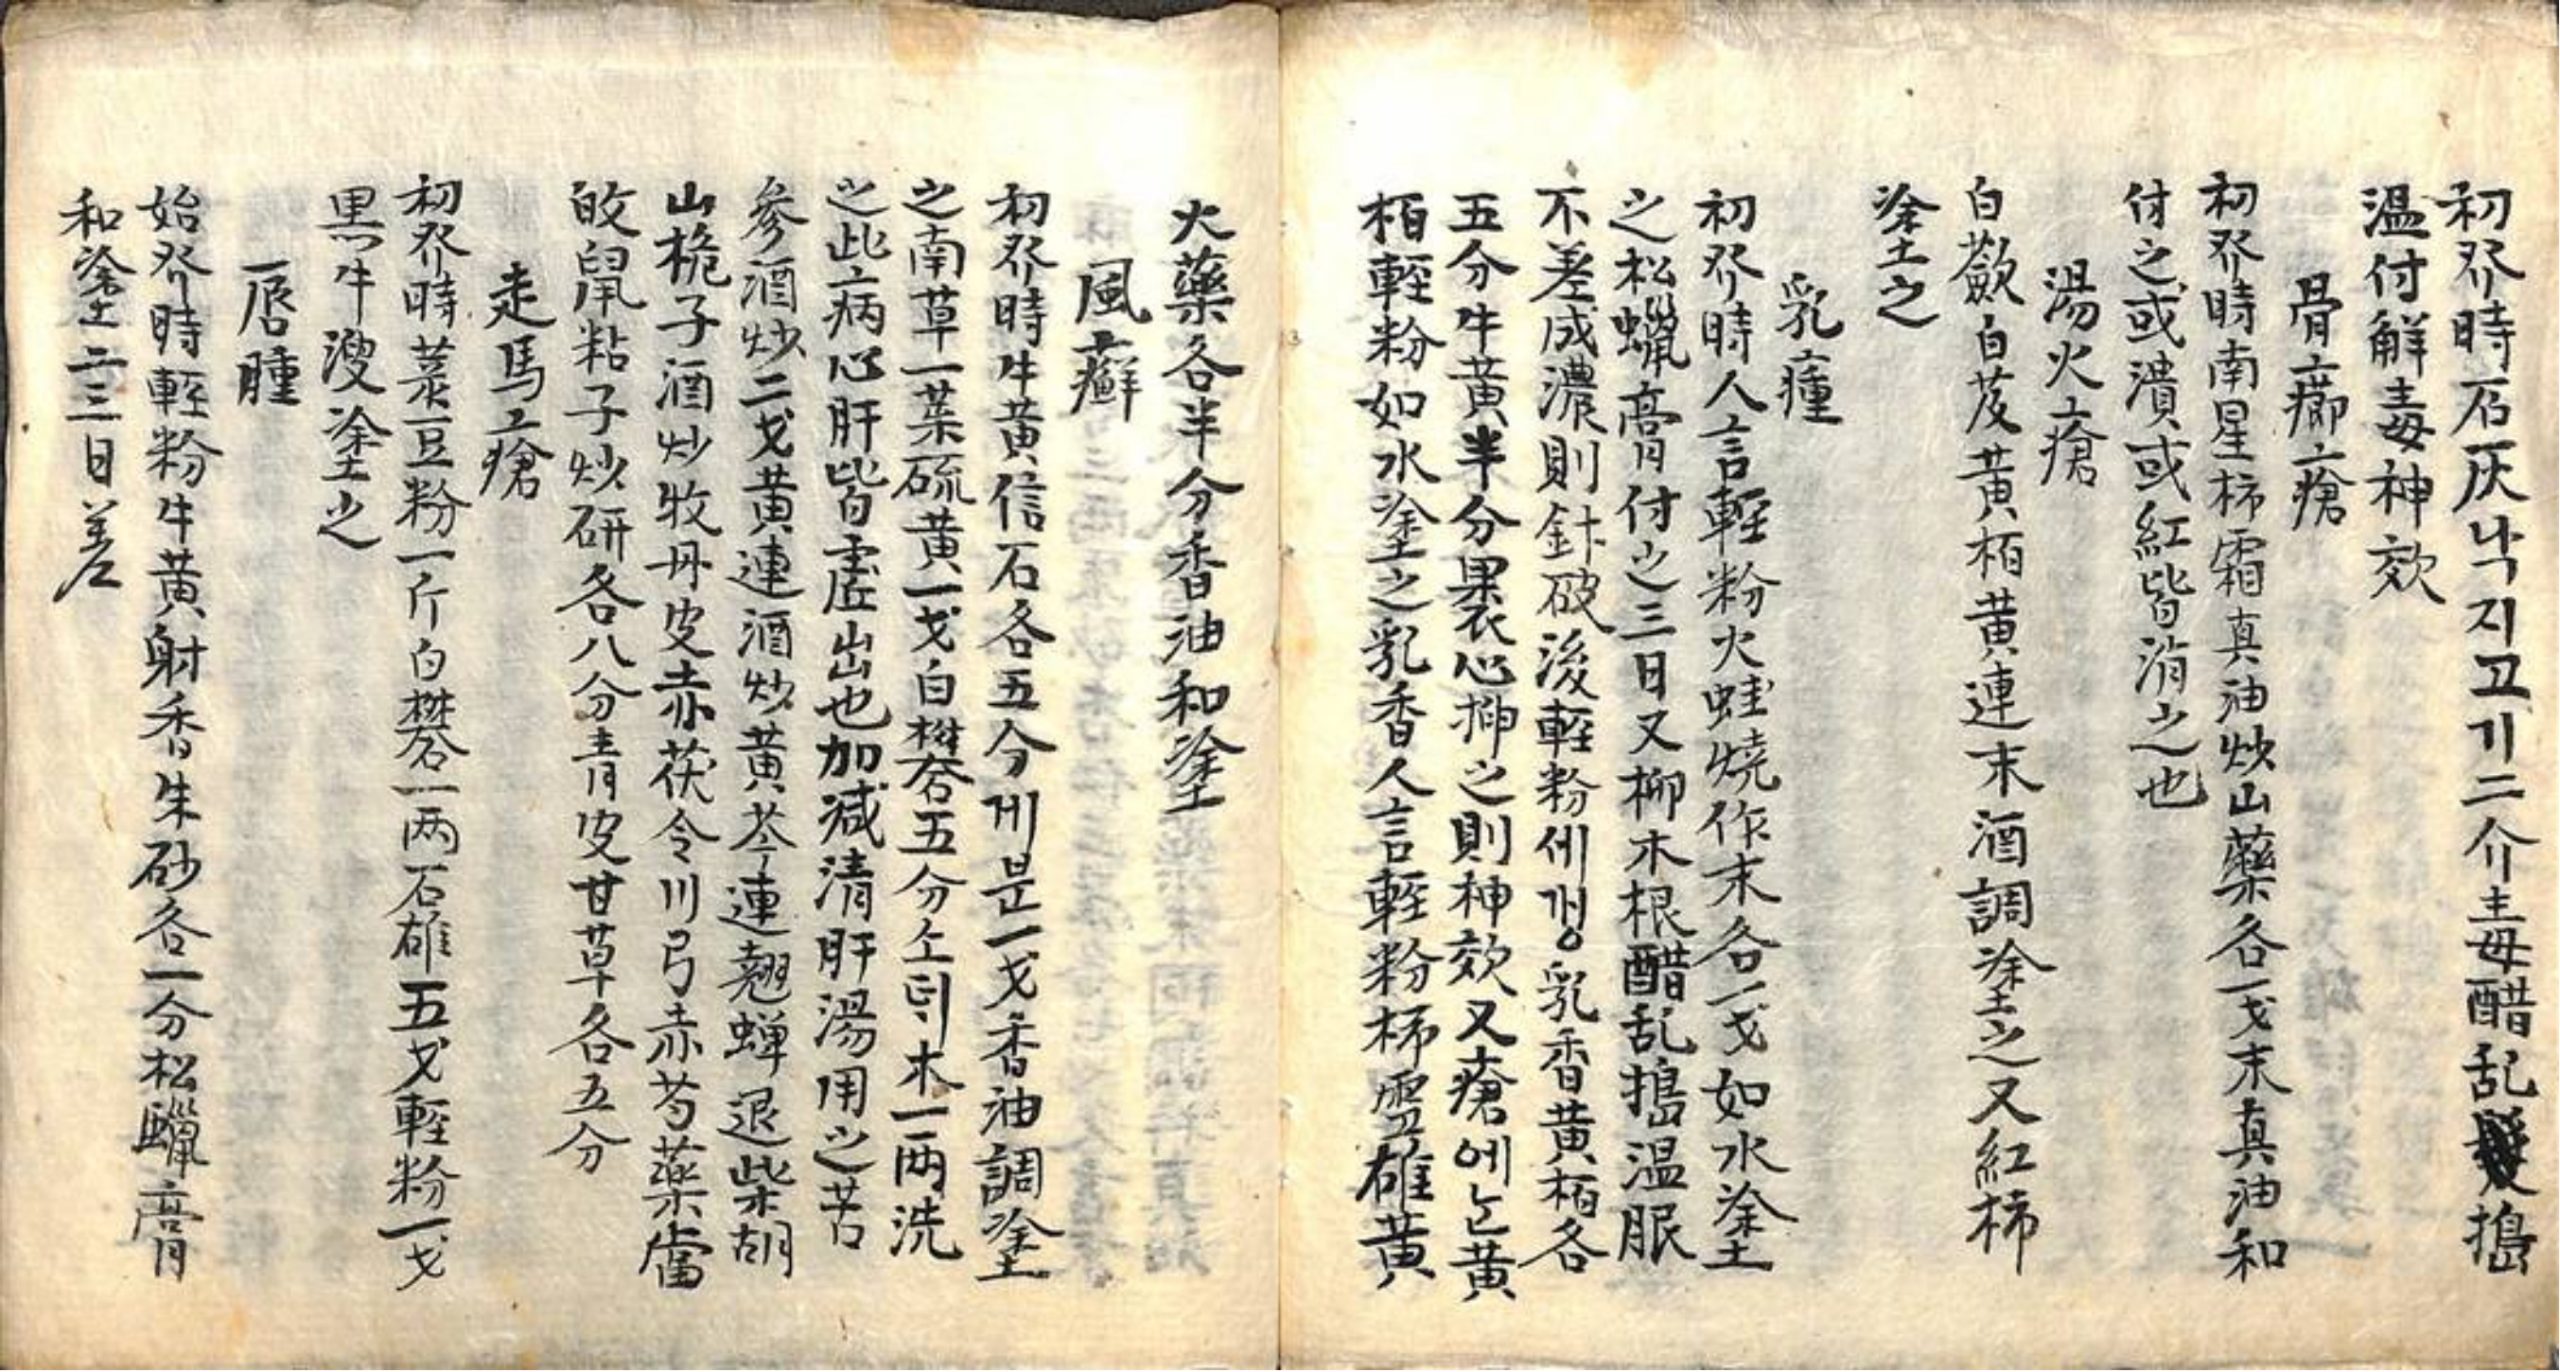 初發時石灰낙지고기二介主母醋乱髮搗
温付觧毒神効
骨癤瘡
初發時南星柿霜真油炒山藥各一戔末真油和
付之或潰或紅皆消之也
湯火瘡
白蘞白芨黄栢黄連末酒調塗之又紅柿
塗之
乳瘇
初發時人言輕粉火蛙燒作末各一戔如水塗
之松蠟膏付之三日又柳木根醋乱搗温服
不差成濃則針破後輕粉세겅乳香黄栢各
五分牛黄半分裹心揷之則神効又瘡에黄
栢輕粉如水塗之乳香人言輕粉柿雪雄黄
火藥各半分香油和塗
風癬
初發時牛黄信石各五分게분一戔香油調塗
之南草一葉硫黄一戔白礬五分木一两洗
之此病心肝皆虚出也加减清肝湯用之苦
參酒炒二戔黄連酒炒黄芩連翹蝉退柴胡
山梔子酒炒牧丹皮赤茯令川弓赤芍藥當
皈鼠粘子炒研各八分青皮甘草各五分
走馬瘡
初發時菉豆粉一斤白礬一两石雄五戔輕粉一戔
黒牛溲塗之
唇腫
始發時輕粉牛黄射香朱砂各一分松蠟膏
和塗二三日差